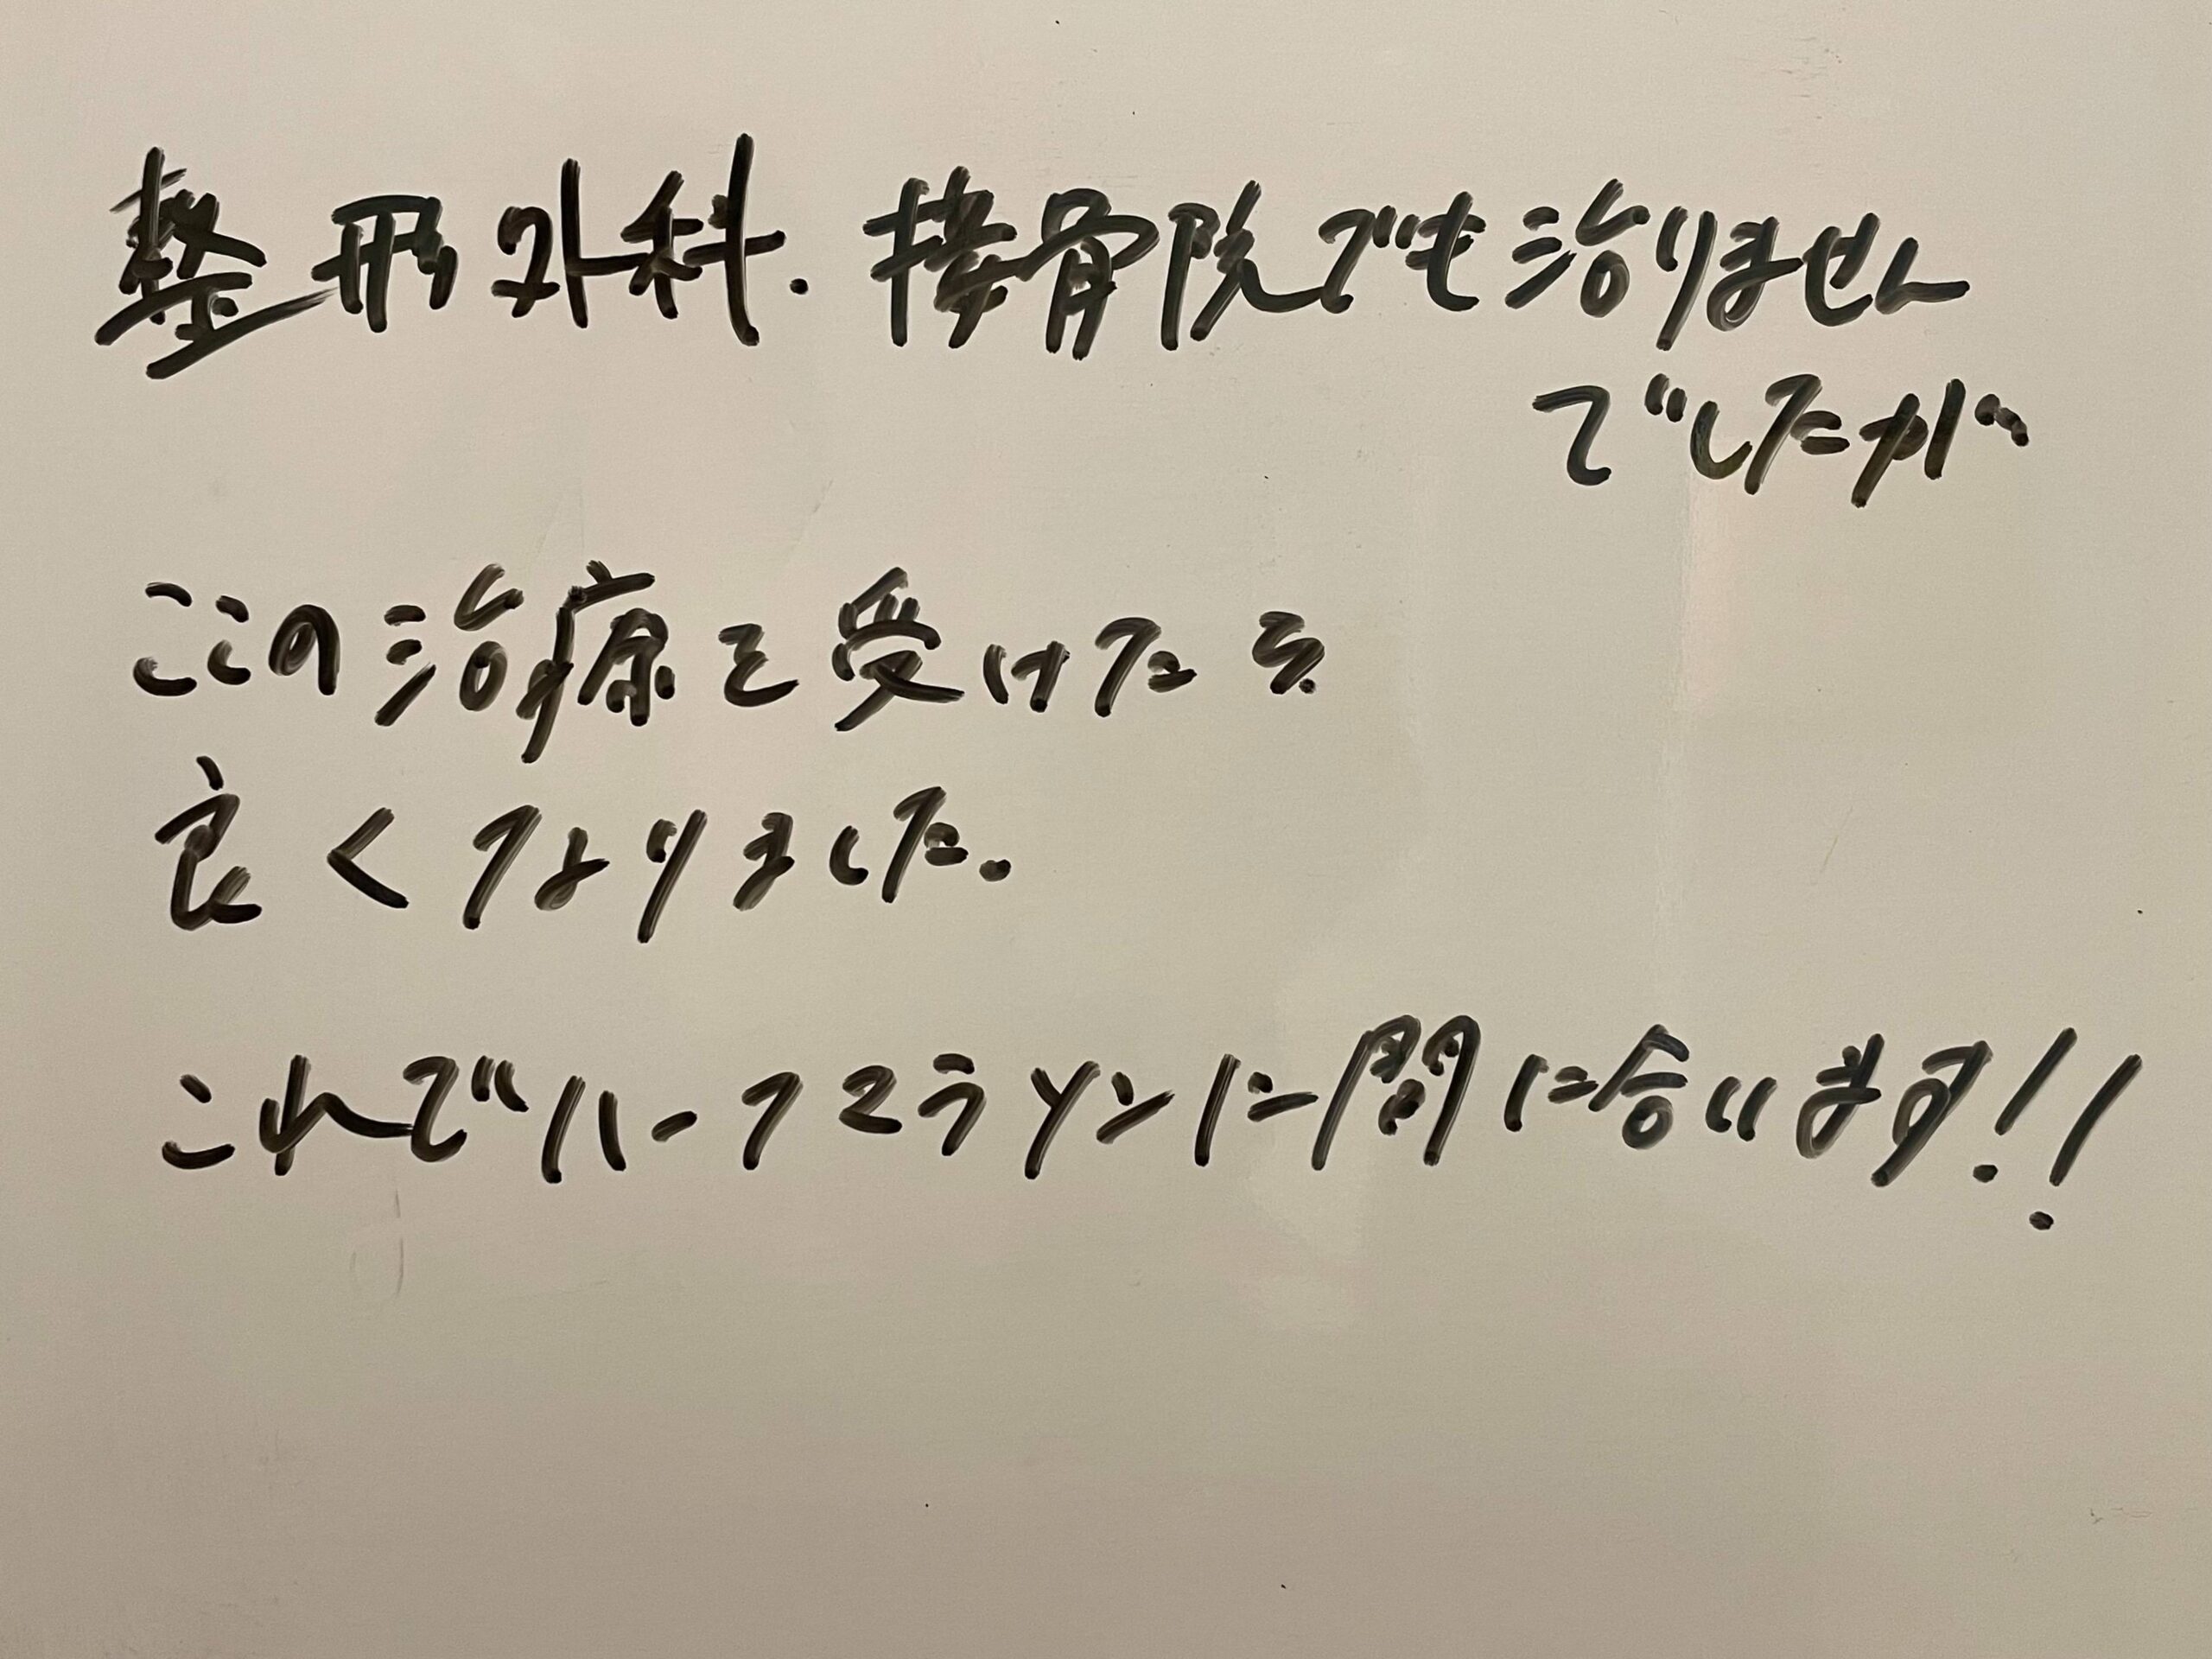 整形外科.接骨院でも治りません
でしたが
ここの治療を受けたら
良くなりました.
これでハーフマラソンに間に合います!!